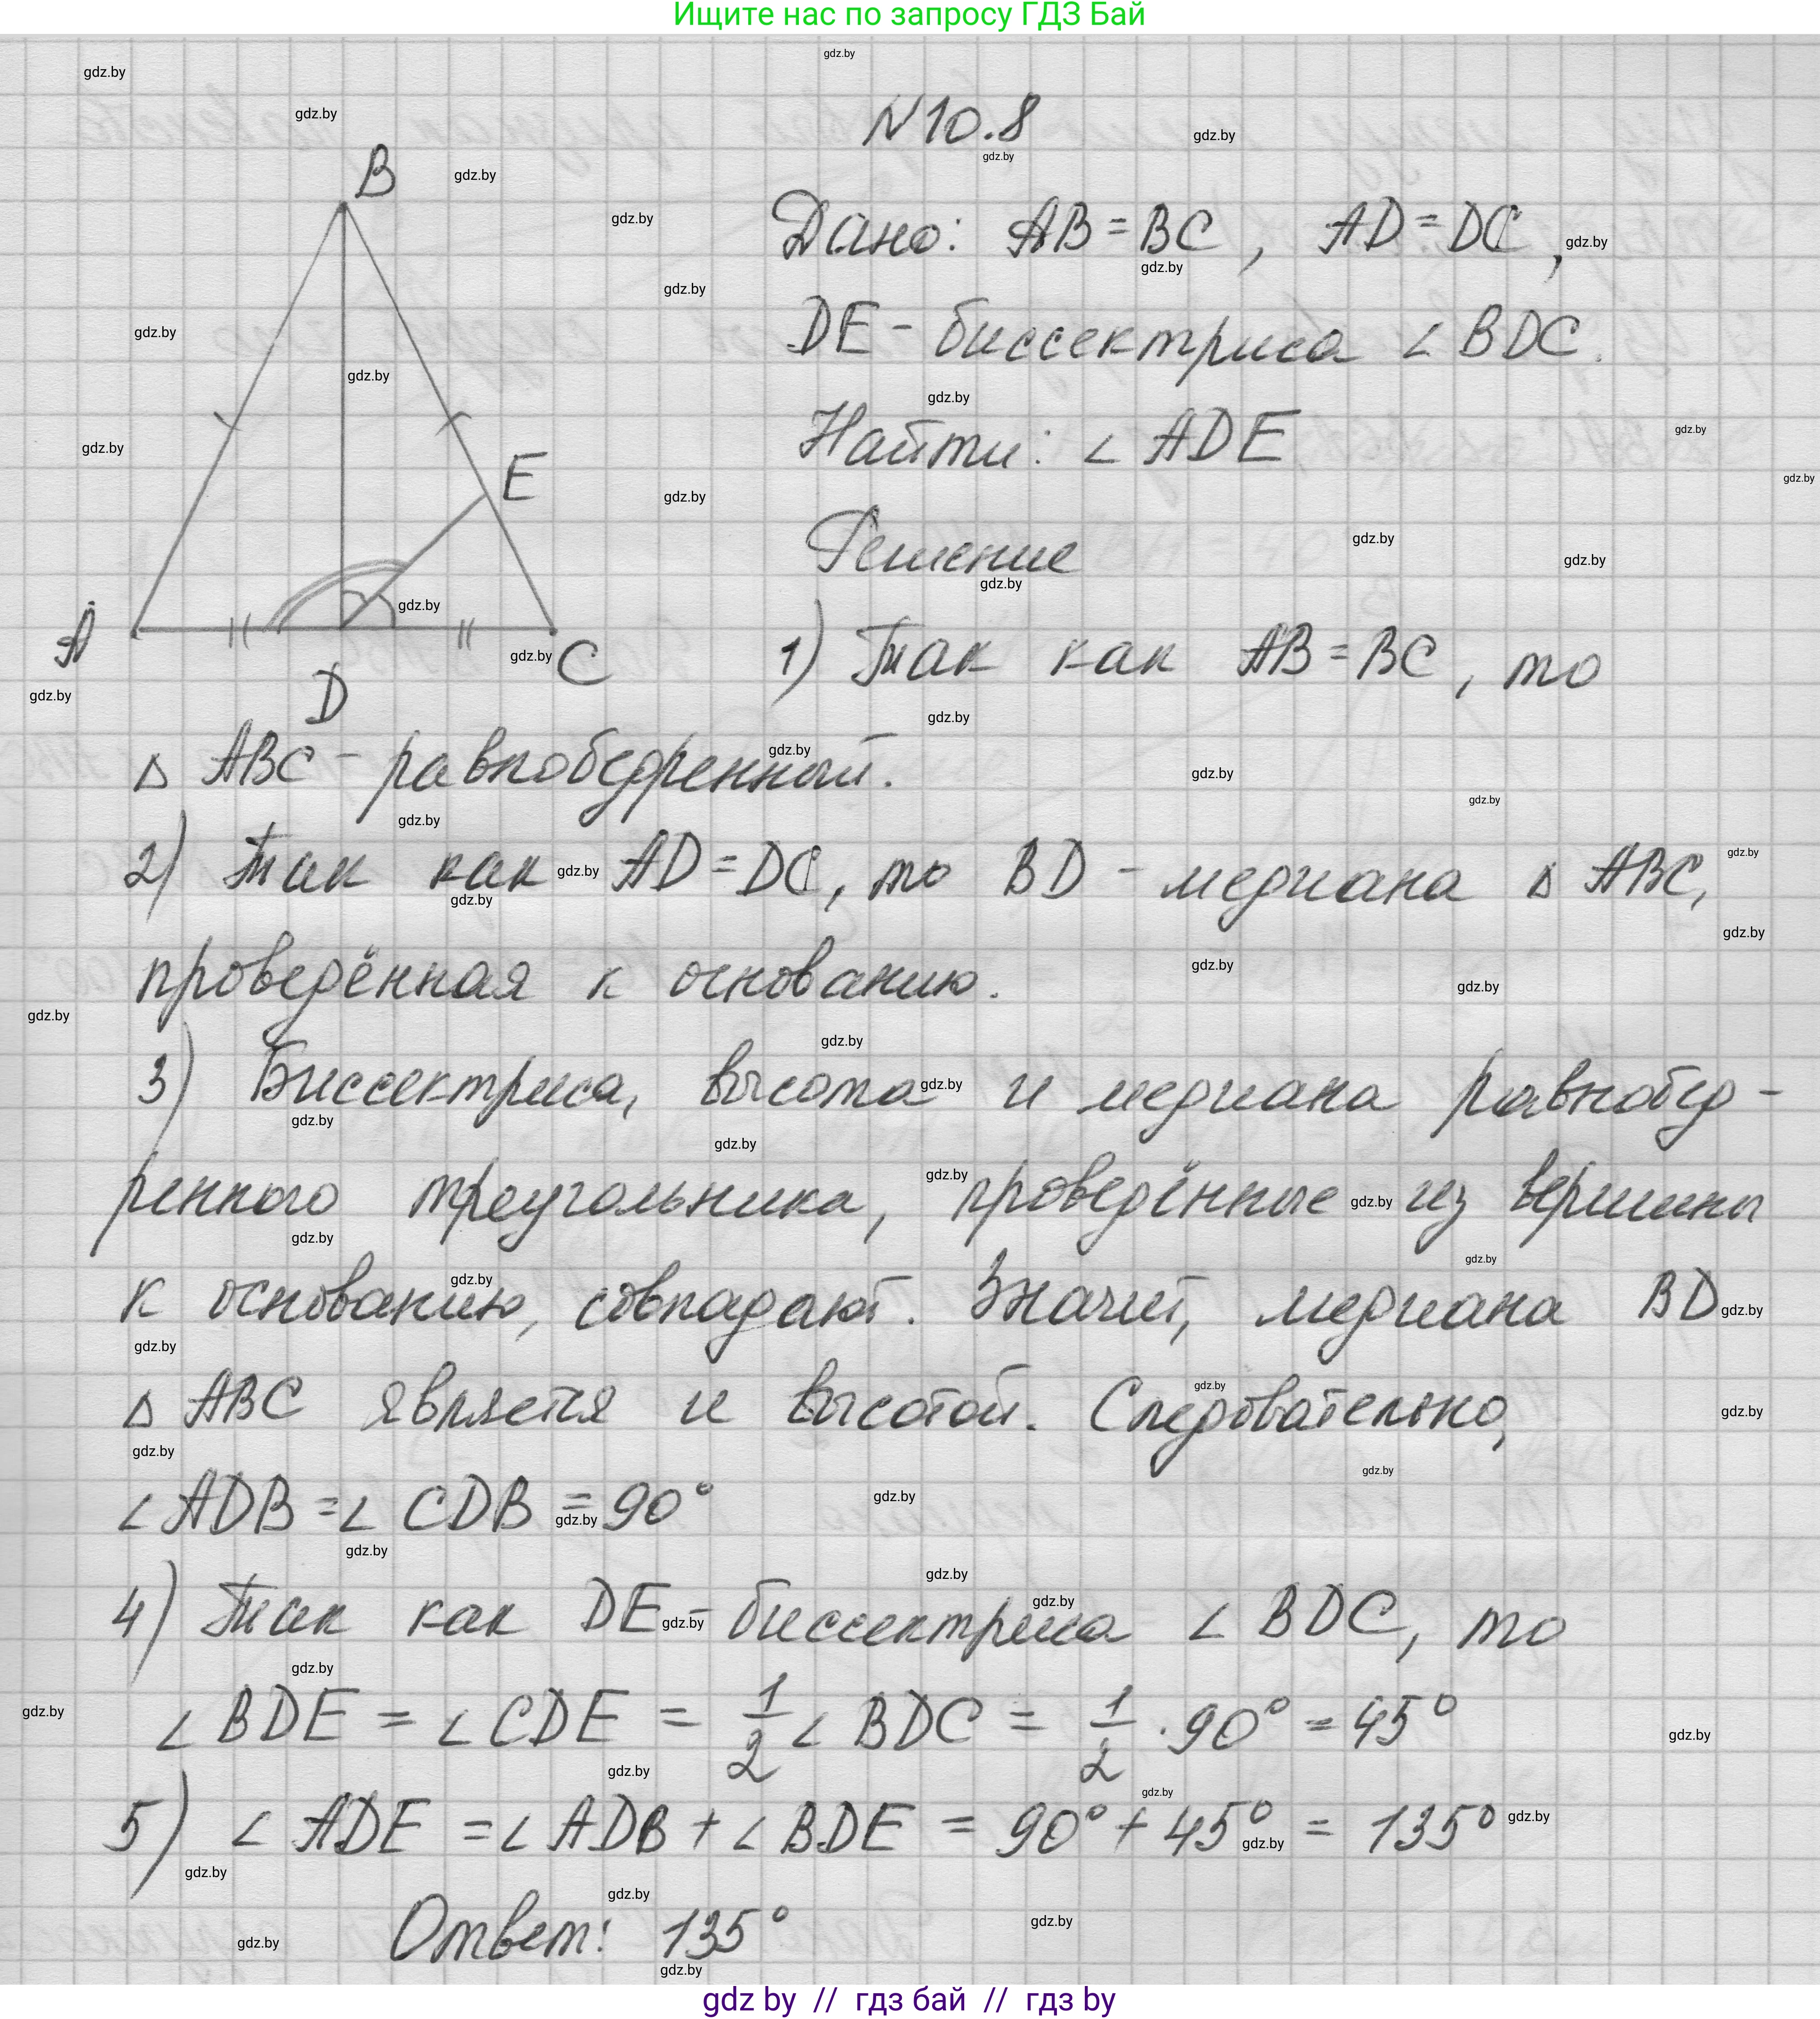 Ищите нас по запросу ГДЗ Бай
N10.8
B
Дано: AB = BC, AD = DC,
DE - биссектриса ∠ BDC.
Найти: ∠ ADE
E
Решение
A
D
C
1) Так как AB = BC, то
Δ ABC - равнобедренный.
2) Так как AD = DC, то BD - медиана Δ ABC,
проведённая к основанию.
3) Биссектриса, высота и медиана равнобед-
ренного треугольника, проведённые из вершины
к основанию, совпадают. Значит, медиана BD
Δ ABC является и высотой. Следовательно,
∠ ADB = ∠ CDB = 90°
4) Так как DE - биссектриса ∠ BDC, то
∠ BDE = ∠ CDE = 1/2 ∠ BDC = 1/2 · 90° = 45°
5) ∠ ADE = ∠ ADB + ∠ BDE = 90° + 45° = 135°
Ответ: 135°
gdz by // гдз бай // гдз by